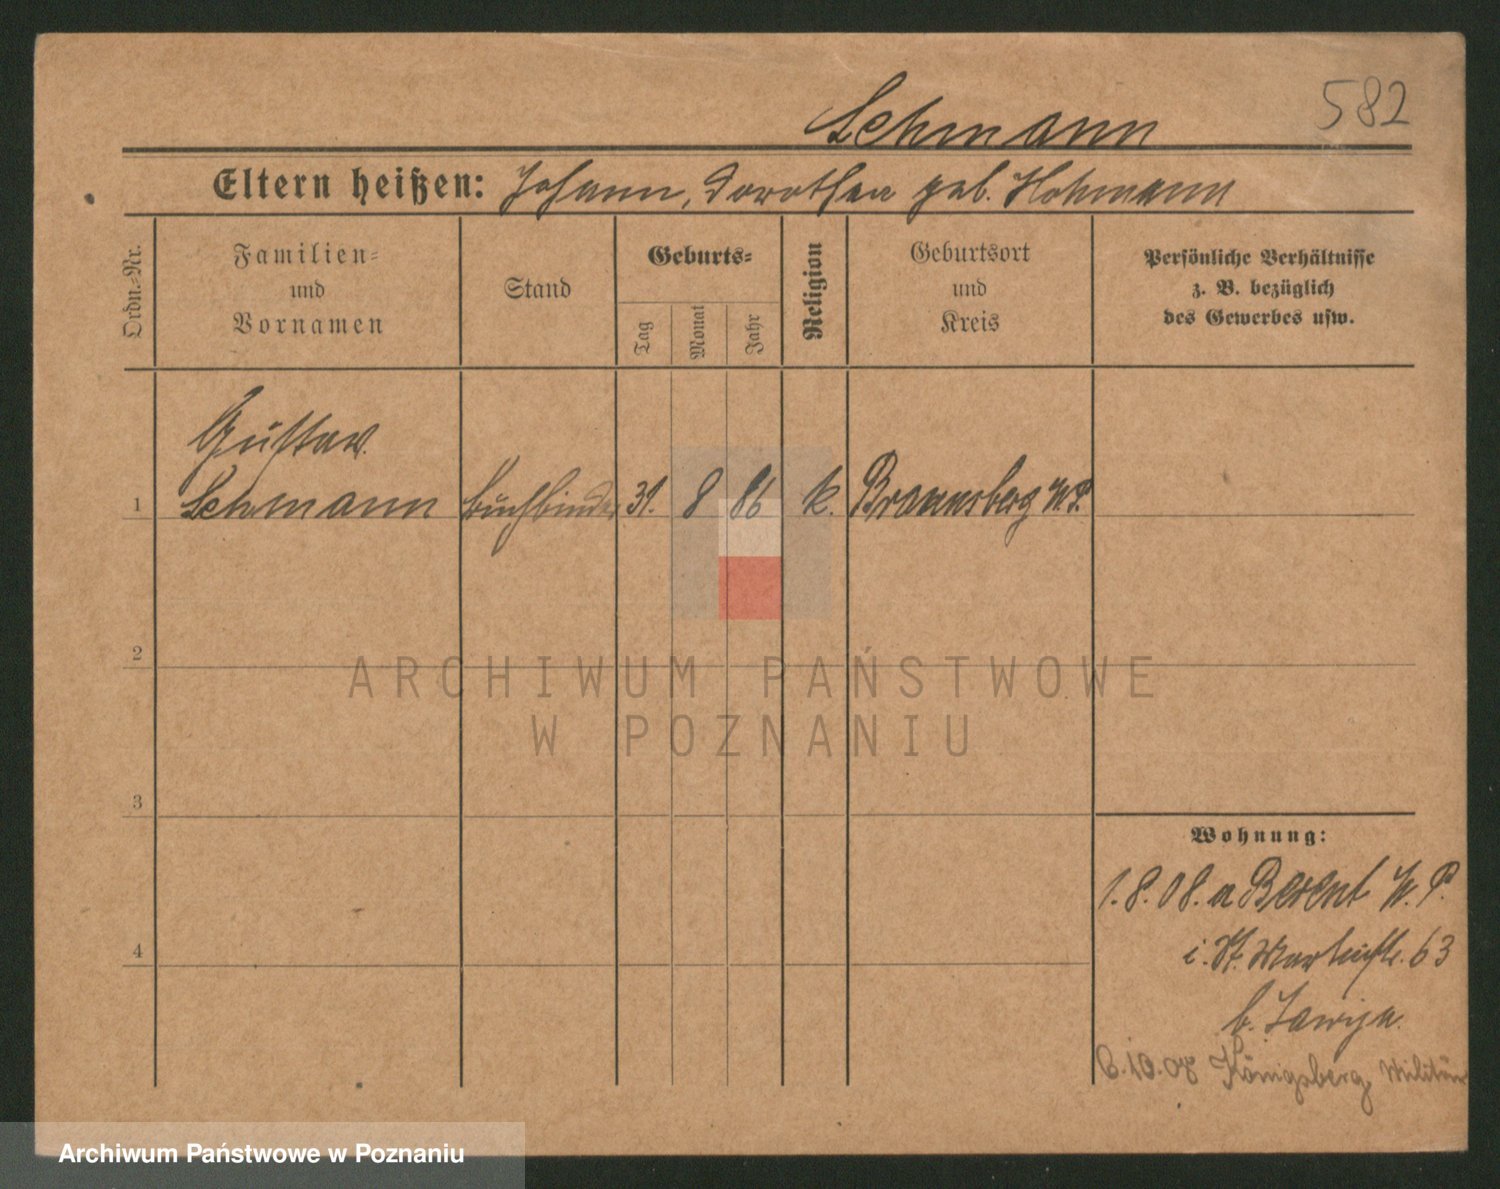 582
Lehmann
Eltern heißen: Johann, Dorothea geb. Hohmann
Ordn.=Nr.
Familien=
und
Vornamen
Stand
Geburts=
Tag
Monat
Jahr
Religion
Geburtsort
und
Kreis
Persönliche Verhältnisse
z. B. bezüglich
des Gewerbes usw.
Gustav
1 Lehmann Buchbinder 31. 8 86 k. Braunsberg W. P.
2
ARCHIWUM PAŃSTWOWE
W POZNANIU
3
Wohnung:
1. 8. 08. a Berent W. P.
4
i. St. Martinstr. 63
b.
6.10.08 Königsberg Militär
Archiwum Państwowe w Poznaniu